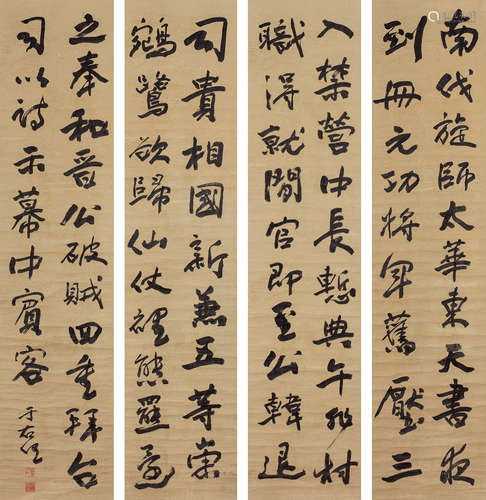 南伐旋師太華東天書夜
到冊元功將軍舊壓三
入禁營中長慙典午非材
職得就閒官即至公韓退
司貴相國新兼五等崇
鵷鷺欲歸仙仗裡熊羆還
之奉和晉公破賊回重拜台
司以詩示幕中賓客
于右任